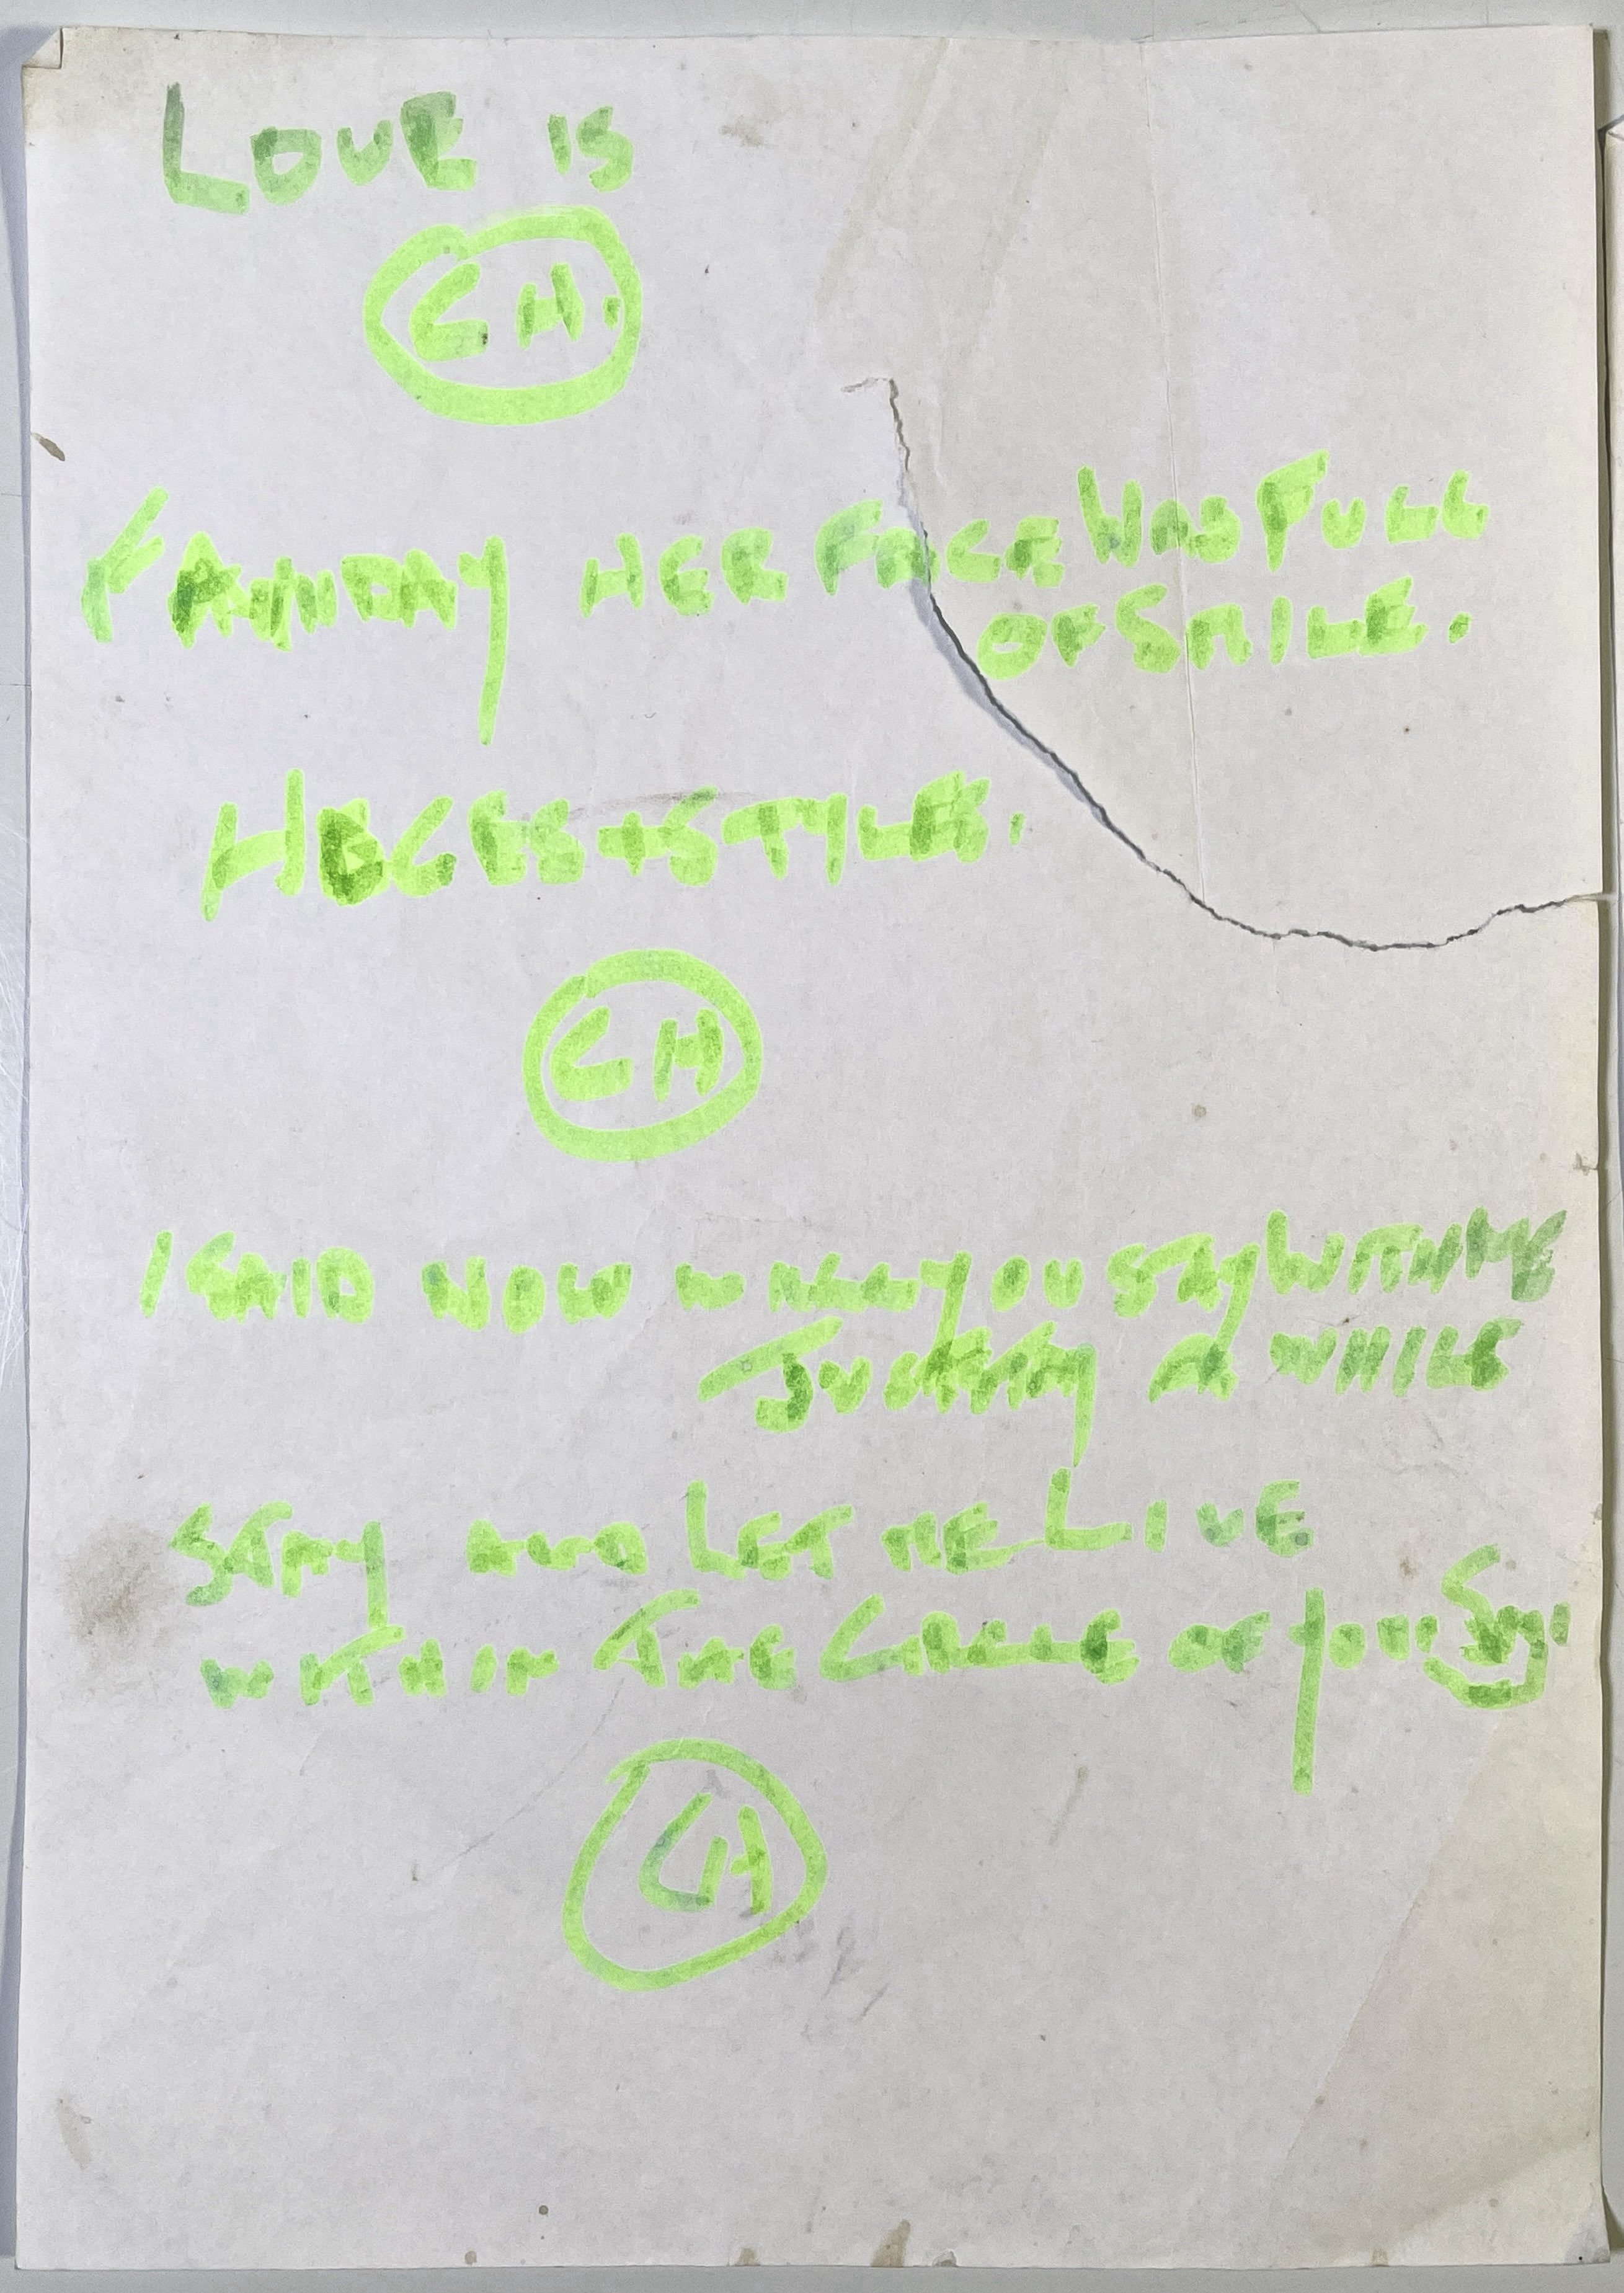 LOVE IS
CH.
HER FACE WAS FULL
OF SMILE.
+ STYLES.
CH
I SAID NOW WILL YOU STAY WITH ME
A WHILE
STAY AND LET ME LIVE
WITHIN THE CIRCLE OF YOUR
CH